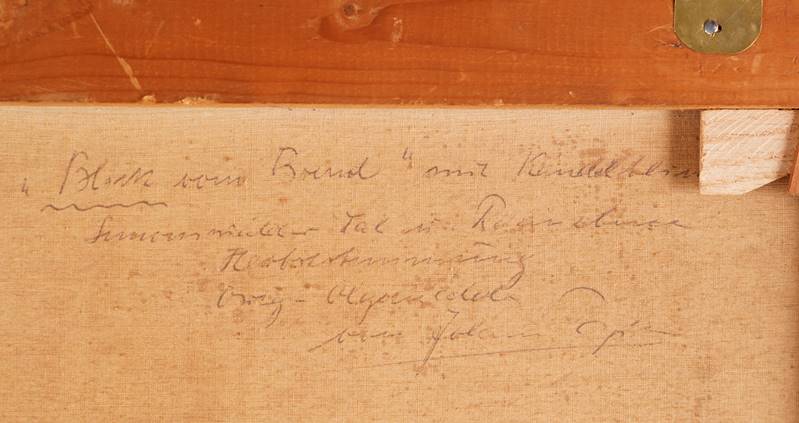 „Blick vom Brend" mit Kandelblick
Simonswälder Tal u. Rheinebene
Herbststimmung
Orig-Ölgemälde
von Johann